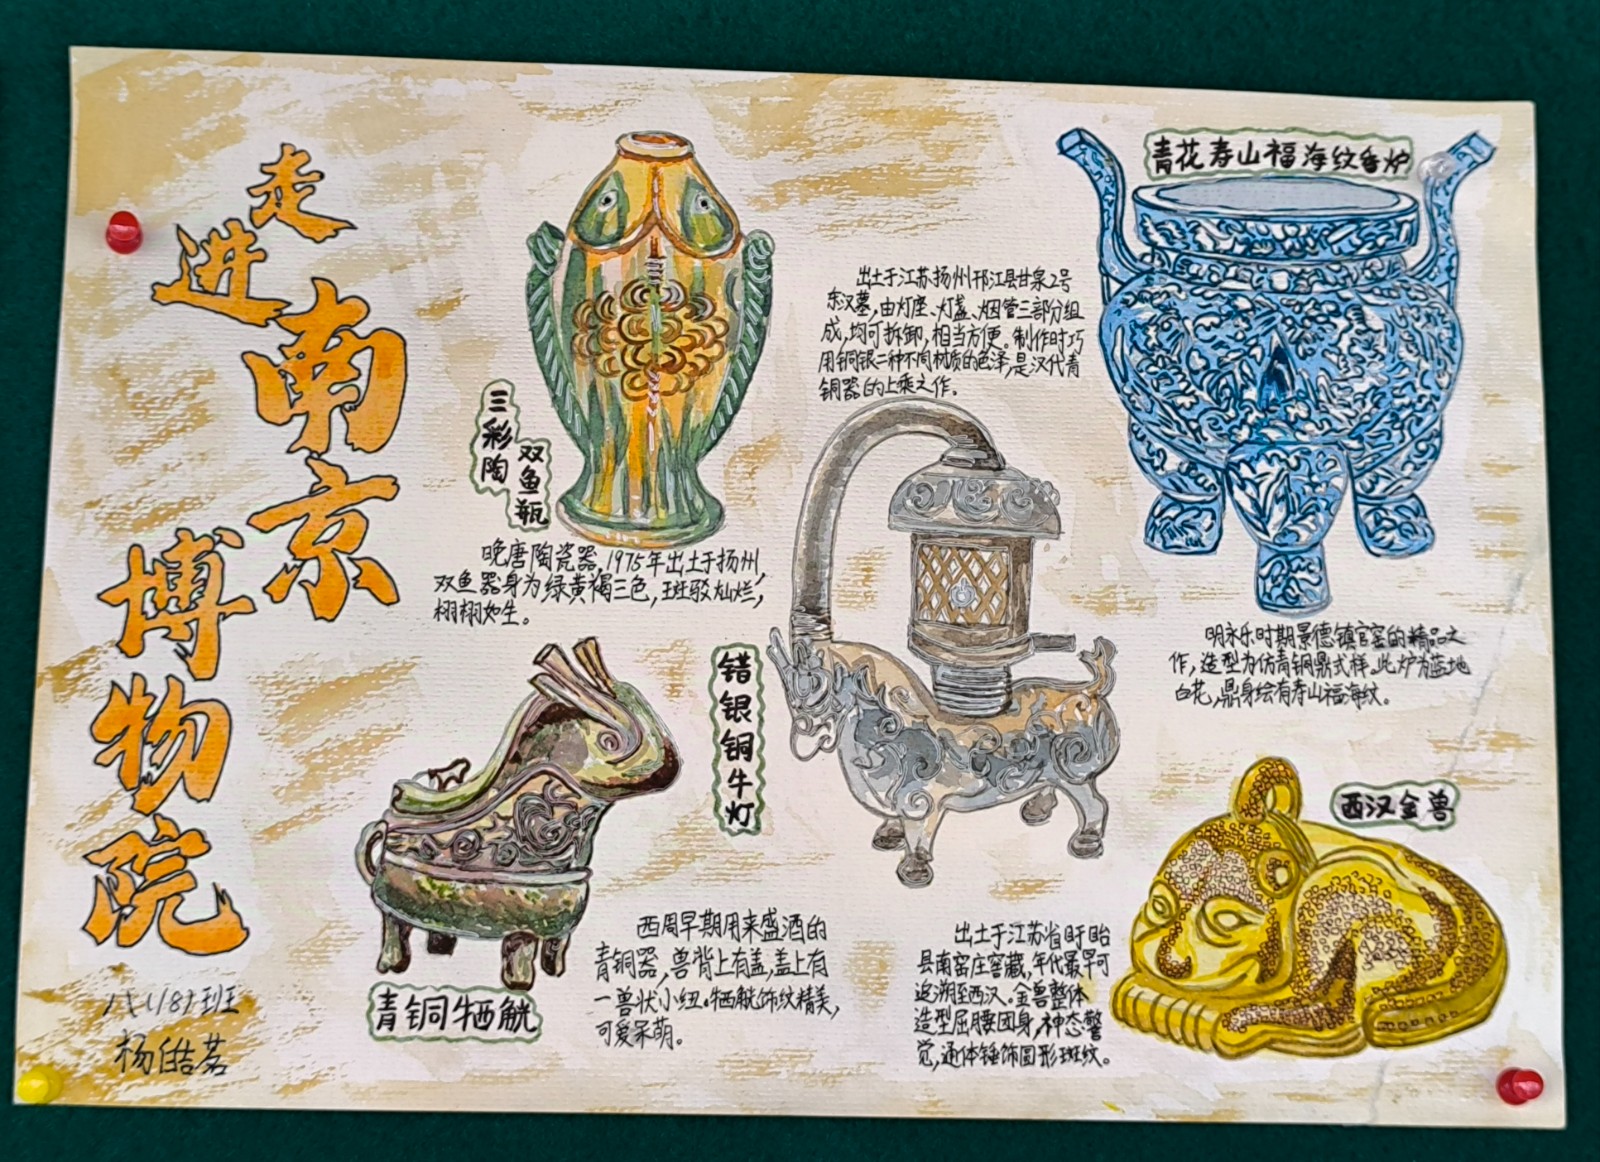 走进
南京
博物院
八(18)班
杨皓茗
三彩陶
双鱼瓶
晚唐陶瓷器,1975年出土于扬州,
双鱼器身为绿黄褐三色,斑驳灿烂,
栩栩如生。
出土于江苏扬州邗江县甘泉2号
东汉墓,由灯座、灯盏、烟管三部分组
成,均可拆卸,相当方便。制作时巧
用铜银二种不同材质的色泽,是汉代青
铜器的上乘之作。
错银铜牛灯
青花寿山福海纹香炉
明永乐时期景德镇官窑的精品之
作,造型为仿青铜鼎式样。此炉为蓝地
白花,鼎身绘有寿山福海纹。
青铜牺觥
西周早期用来盛酒的
青铜器,兽背上有盖,盖上有
一兽状小纽。牺觥饰纹精美,
可爱呆萌。
西汉金兽
出土于江苏省盱眙
县南窑庄窖藏,年代最早可
追溯至西汉。金兽整体
造型屈腰团身,神态警
觉,通体锤饰圆形斑纹。